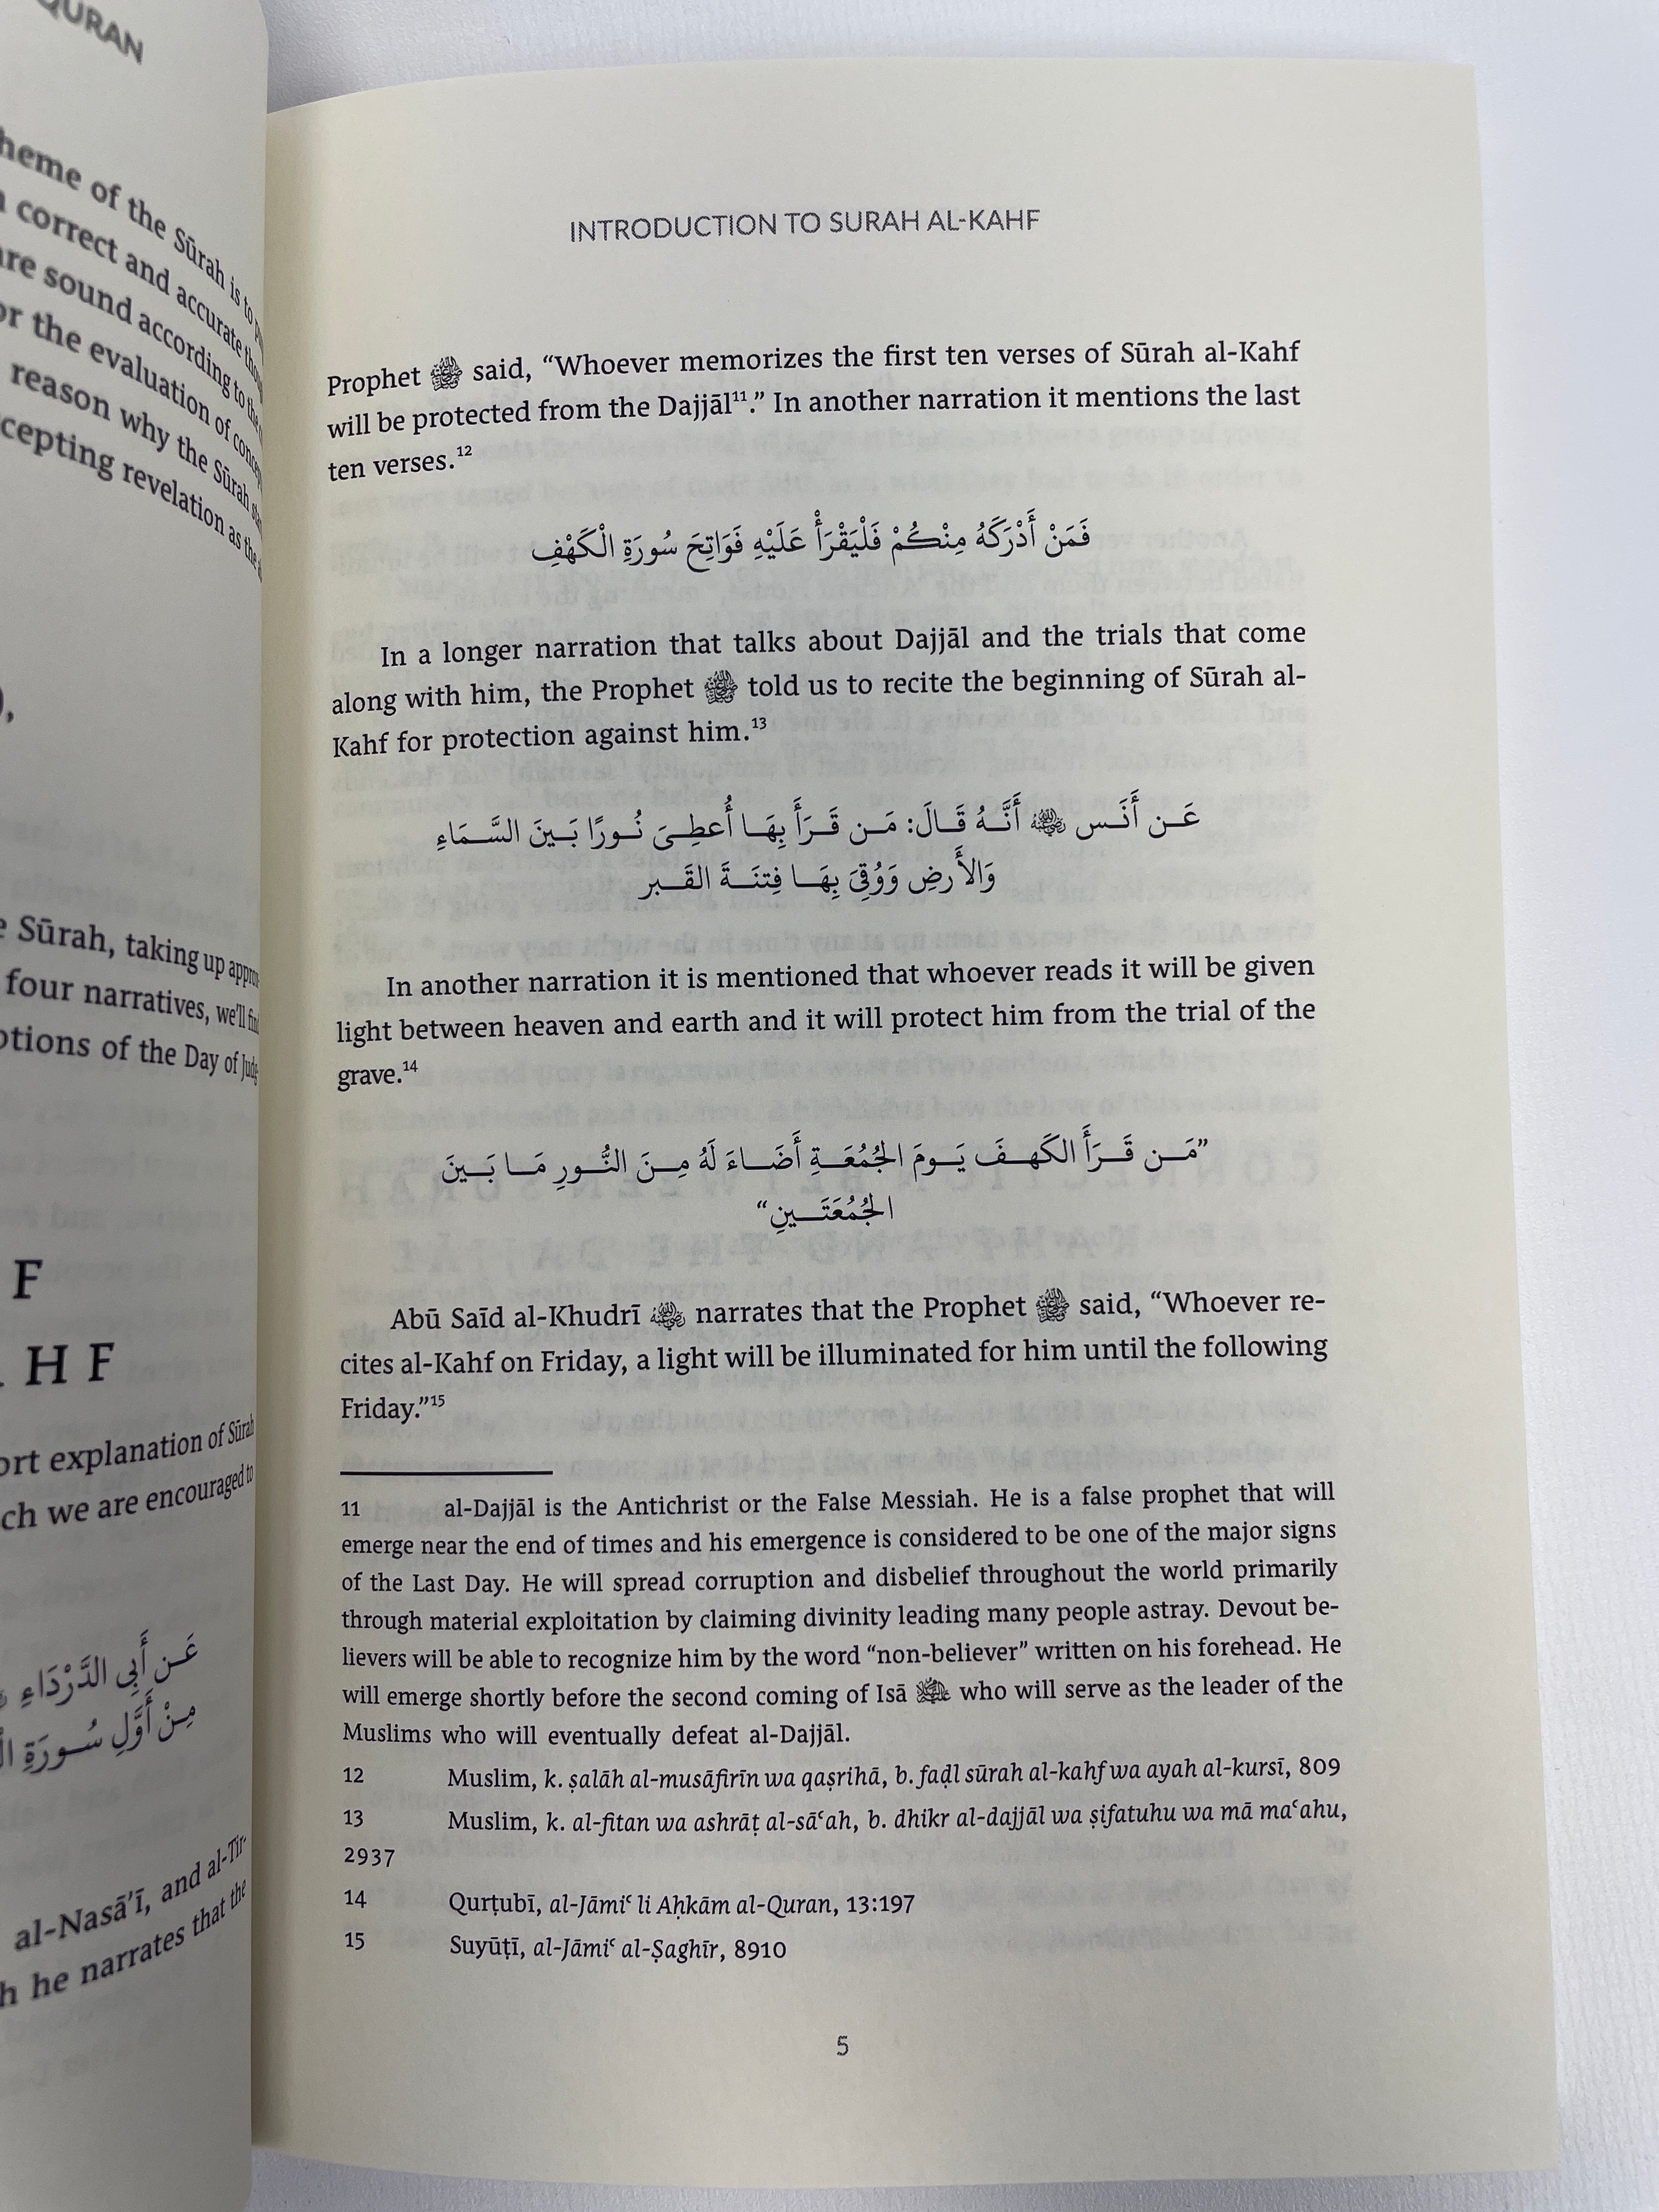 QURAN
heme of the Sūrah is to
correct and accurate
are sound according to the
or the evaluation of
reason why the Sūrah
cepting revelation as the
),
e Sūrah, taking up
four narratives, we'll
ptions of the Day of
F
H F
ort explanation of Sūrah
ch we are encouraged to
عَن أَبِي الدَّرْدَاءِ
مِنْ أَوَّلِ سُورَةِ
al-Nasā’ī, and al-Tir-
h he narrates that the
INTRODUCTION TO SURAH AL-KAHF
Prophet ﷺ said, “Whoever memorizes the first ten verses of Sūrah al-Kahf
will be protected from the Dajjāl¹¹.” In another narration it mentions the last
ten verses.¹²
فَمَنْ أَدْرَكَهُ مِنْكُمْ فَلْيَقْرَأْ عَلَيْهِ فَوَاتِحَ سُورَةِ الْكَهْفِ
In a longer narration that talks about Dajjāl and the trials that come
along with him, the Prophet ﷺ told us to recite the beginning of Sūrah al-
Kahf for protection against him.¹³
عَن أَنَس أَنَّهُ قَالَ: مَن قَرَأَ بِهَا أُعطِىَ نُورًا بَينَ السَّمَاءِ
وَالأَرضِ وَوُقِىَ بِهَا فِتنَةَ القَبر
In another narration it is mentioned that whoever reads it will be given
light between heaven and earth and it will protect him from the trial of the
grave.¹⁴
”مَن قَرَأَ الكَهفَ يَومَ الجُمُعَةِ أَضَاءَ لَهُ مِنَ النُّورِ مَا بَينَ
الجُمُعَتَينِ“
Abū Saīd al-Khudrī narrates that the Prophet ﷺ said, “Whoever re-
cites al-Kahf on Friday, a light will be illuminated for him until the following
Friday.”¹⁵
11 al-Dajjāl is the Antichrist or the False Messiah. He is a false prophet that will
emerge near the end of times and his emergence is considered to be one of the major signs
of the Last Day. He will spread corruption and disbelief throughout the world primarily
through material exploitation by claiming divinity leading many people astray. Devout be-
lievers will be able to recognize him by the word “non-believer” written on his forehead. He
will emerge shortly before the second coming of Isā who will serve as the leader of the
Muslims who will eventually defeat al-Dajjāl.
12 Muslim, k. ṣalāh al-musāfirīn wa qaṣrihā, b. faḍl sūrah al-kahf wa ayah al-kursī, 809
13 Muslim, k. al-fitan wa ashrāṭ al-sāʿah, b. dhikr al-dajjāl wa ṣifatuhu wa mā maʿahu,
2937
14 Qurṭubī, al-Jāmiʿ li Aḥkām al-Quran, 13:197
15 Suyūṭī, al-Jāmiʿ al-Ṣaghīr, 8910
5